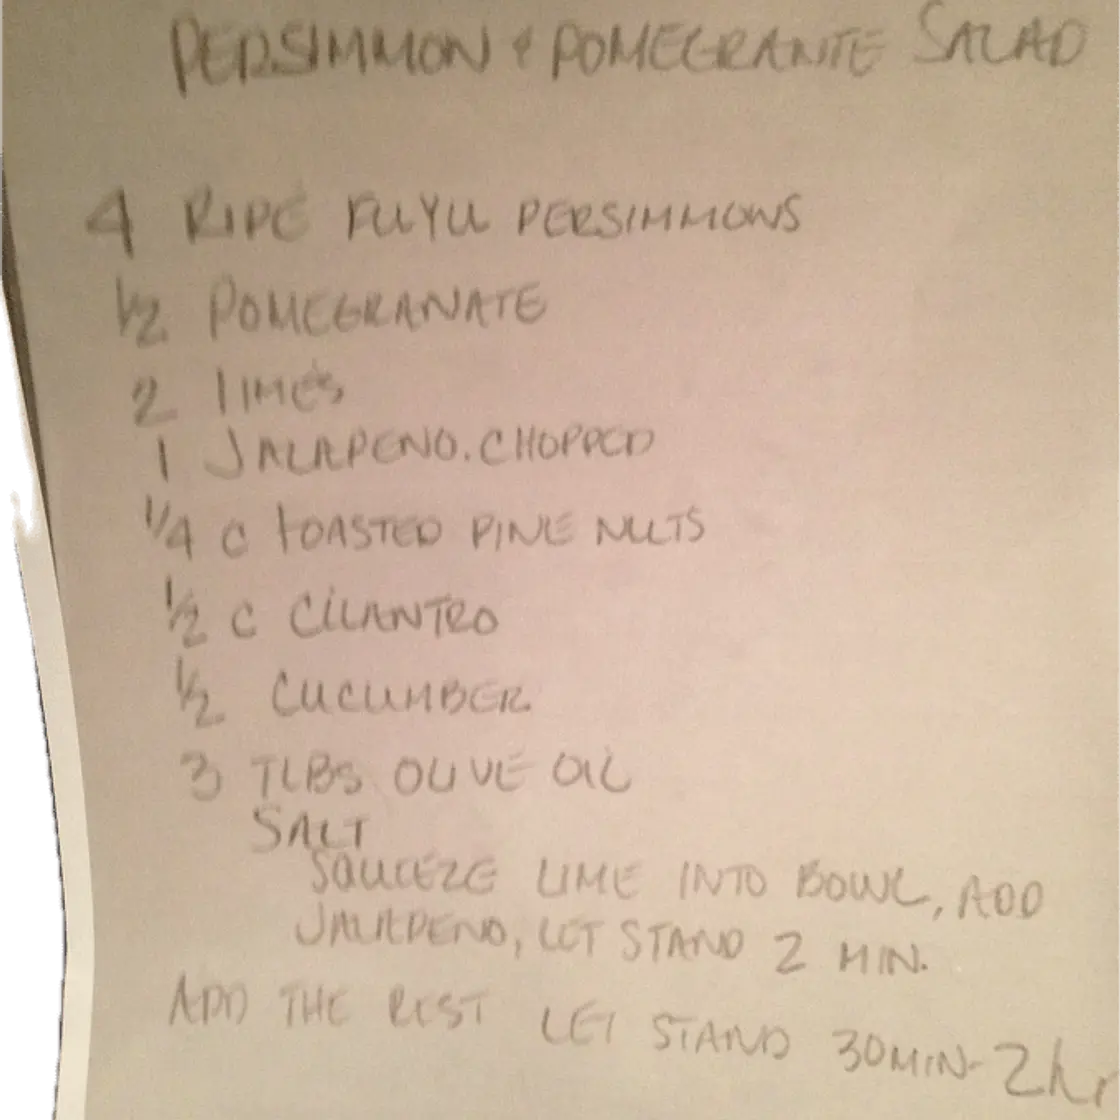 PERSIMMON & POMEGRANTE SALAD
4 RIPE FUYU PERSIMMONS
1/2 POMEGRANATE
2 limes
1 JALAPENO. CHOPPED
1/4 C TOASTED PINE NUTS
1/2 C CILANTRO
1/2 CUCUMBER
3 TLBS OLIVE OIL
SALT
SQUEEZE LIME INTO BOWL, ADD
JALAPENO, LET STAND 2 MIN.
ADD THE REST LET STAND 30MIN-2hr